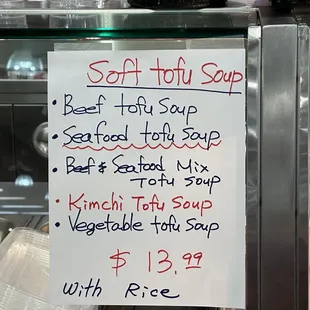 Soft tofu Soup
• Beef tofu Soup
• Seafood tofu Soup
• Beef & Seafood Mix
Tofu Soup
• Kimchi Tofu Soup
• Vegetable tofu Soup
$ 13.99
With Rice